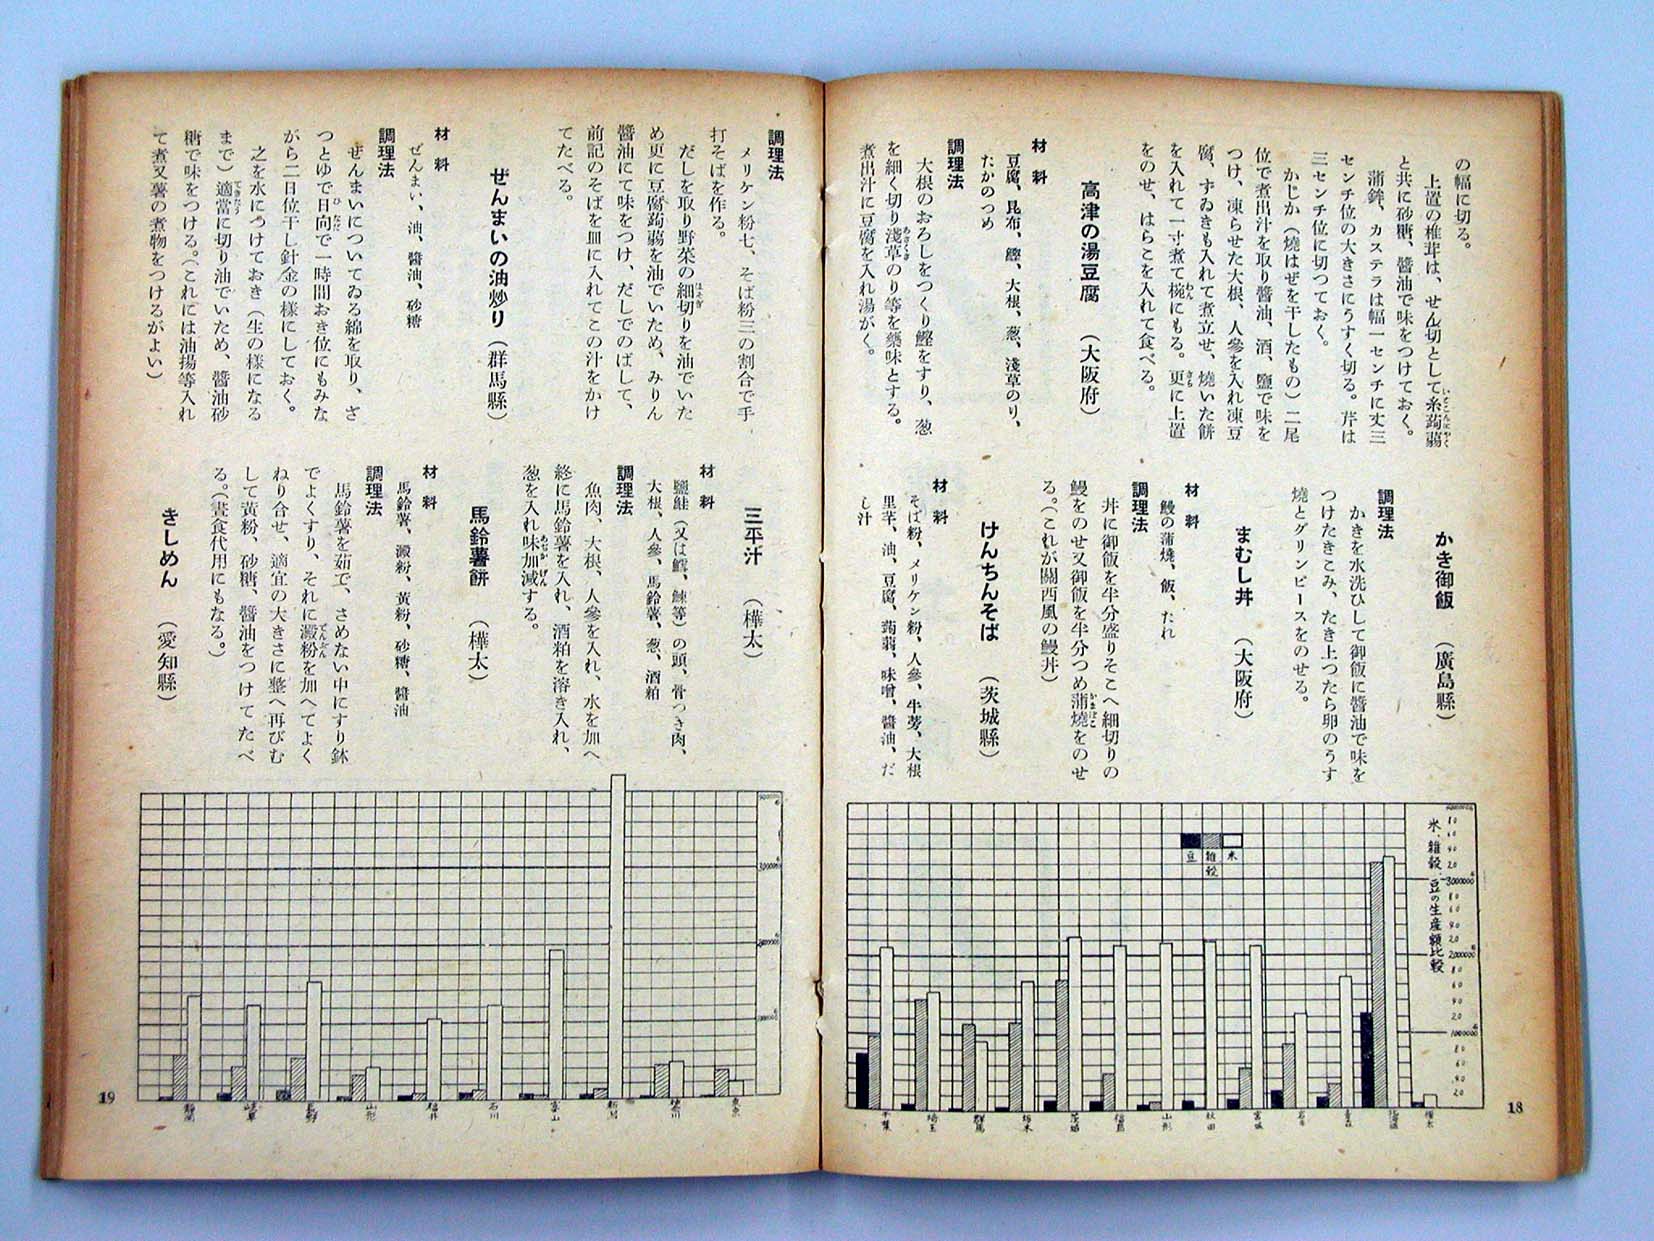 の幅に切る。
上置の椎茸は、せん切として糸蒟蒻
と共に砂糖、醬油で味をつけておく。
蒲鉾、カステラは幅一センチに丈三
センチ位の大きさにうすく切る。芹は
三センチ位に切つておく。
かじか（燒はぜを干したもの）二尾
位で煮出汁を取り醬油、酒、鹽で味を
つけ、凍らせた大根、人參を入れ凍豆
腐、ずゐきも入れて煮立せ、燒いた餅
を入れて一寸煮て椀にもる。更に上置
をのせ、はらこを入れて食べる。
高津の湯豆腐　（大阪府）
材　料
豆腐、昆布、鰹、大根、葱、淺草のり、
たかのつめ
調理法
大根のおろしをつくり鰹をすり、葱
を細く切り淺草のり等を藥味とする。
煮出汁に豆腐を入れ湯がく。
かき御飯　（廣島縣）
調理法
かきを水洗ひして御飯に醬油で味を
つけたきこみ、たき上つたら卵のうす
燒とグリンピースをのせる。
まむし丼　（大阪府）
材　料
鰻の蒲燒、飯、たれ
調理法
丼に御飯を半分盛りそこへ細切りの
鰻をのせ又御飯を半分つめ蒲燒をのせ
る。（これが關西風の鰻丼）
けんちんそば　（茨城縣）
材　料
そば粉、メリケン粉、人參、牛蒡、大根
里芋、油、豆腐、蒟蒻、味噌、醬油、だ
し汁
米、雜穀、豆の生產額比較
米
雜穀
豆
3000000
2000000
1000000
樺太
北海道
靑森
岩手
宮城
秋田
山形
福島
茨城
栃木
群馬
埼玉
千葉
18
調理法
メリケン粉七、そば粉三の割合で手
打そばを作る。
だしを取り野菜の細切りを油でいた
め更に豆腐蒟蒻を油でいため、みりん
醬油にて味をつけ、だしでのばして、
前記のそばを皿に入れてこの汁をかけ
てたべる。
ぜんまいの油炒り（群馬縣）
材　料
ぜんまい、油、醬油、砂糖
調理法
ぜんまいについてゐる綿を取り、さ
つとゆで日向で一時間おき位にもみな
がら二日位干し針金の樣にしておく。
之を水につけておき（生の樣になる
まで）適當に切り油でいため、醬油砂
糖で味をつける。（これには油揚等入れ
て煮又薯の煮物をつけるがよい）
三平汁　（樺太）
材　料
鹽鮭（又は鱈、鰊等）の頭、骨つき肉、
大根、人參、馬鈴薯、葱、酒粕
調理法
魚肉、大根、人參を入れ、水を加へ
終に馬鈴薯を入れ、酒粕を溶き入れ、
葱を入れ味加減する。
馬鈴薯餠　（樺太）
材　料
馬鈴薯、澱粉、黃粉、砂糖、醬油
調理法
馬鈴薯を茹で、さめない中にすり鉢
でよくすり、それに澱粉を加へてよく
ねり合せ、適宜の大きさに整へ再びむ
して黃粉、砂糖、醬油をつけてたべ
る。（晝食代用にもなる。）
きしめん　（愛知縣）
東京
神奈川
新潟
富山
石川
福井
山形
長野
岐阜
靜岡
19